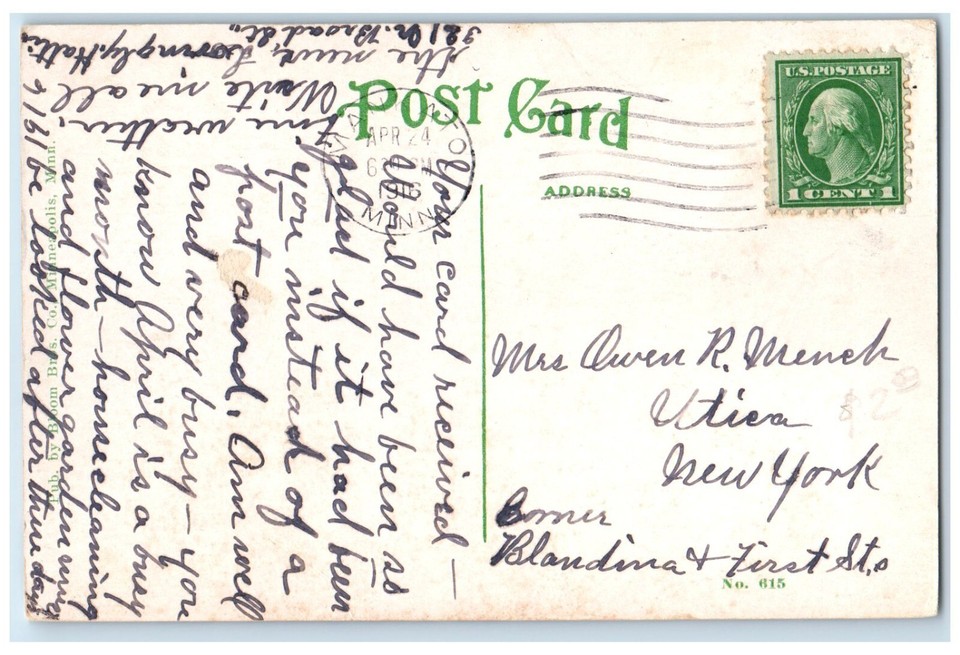 Post Card
ADDRESS
U.S. POSTAGE
1 CENT 1
MANKATO
APR 24
1916
MINN
Mrs Owen R. Mench
Utica
New York
Corner
Blandina & First Sts
No. 615
Pub. by Bloom Bros. Co. Minneapolis, Minn.
Your card received –
Would have been so
glad if it had been
you instead of a
post card. Am well
and very busy – you
know April is a busy
month – housecleaning
and flower gardening
to be looked after these days
fine weather.
Write me all
the news, Lovingly, Hatti
321 N. Broad St.,
$2